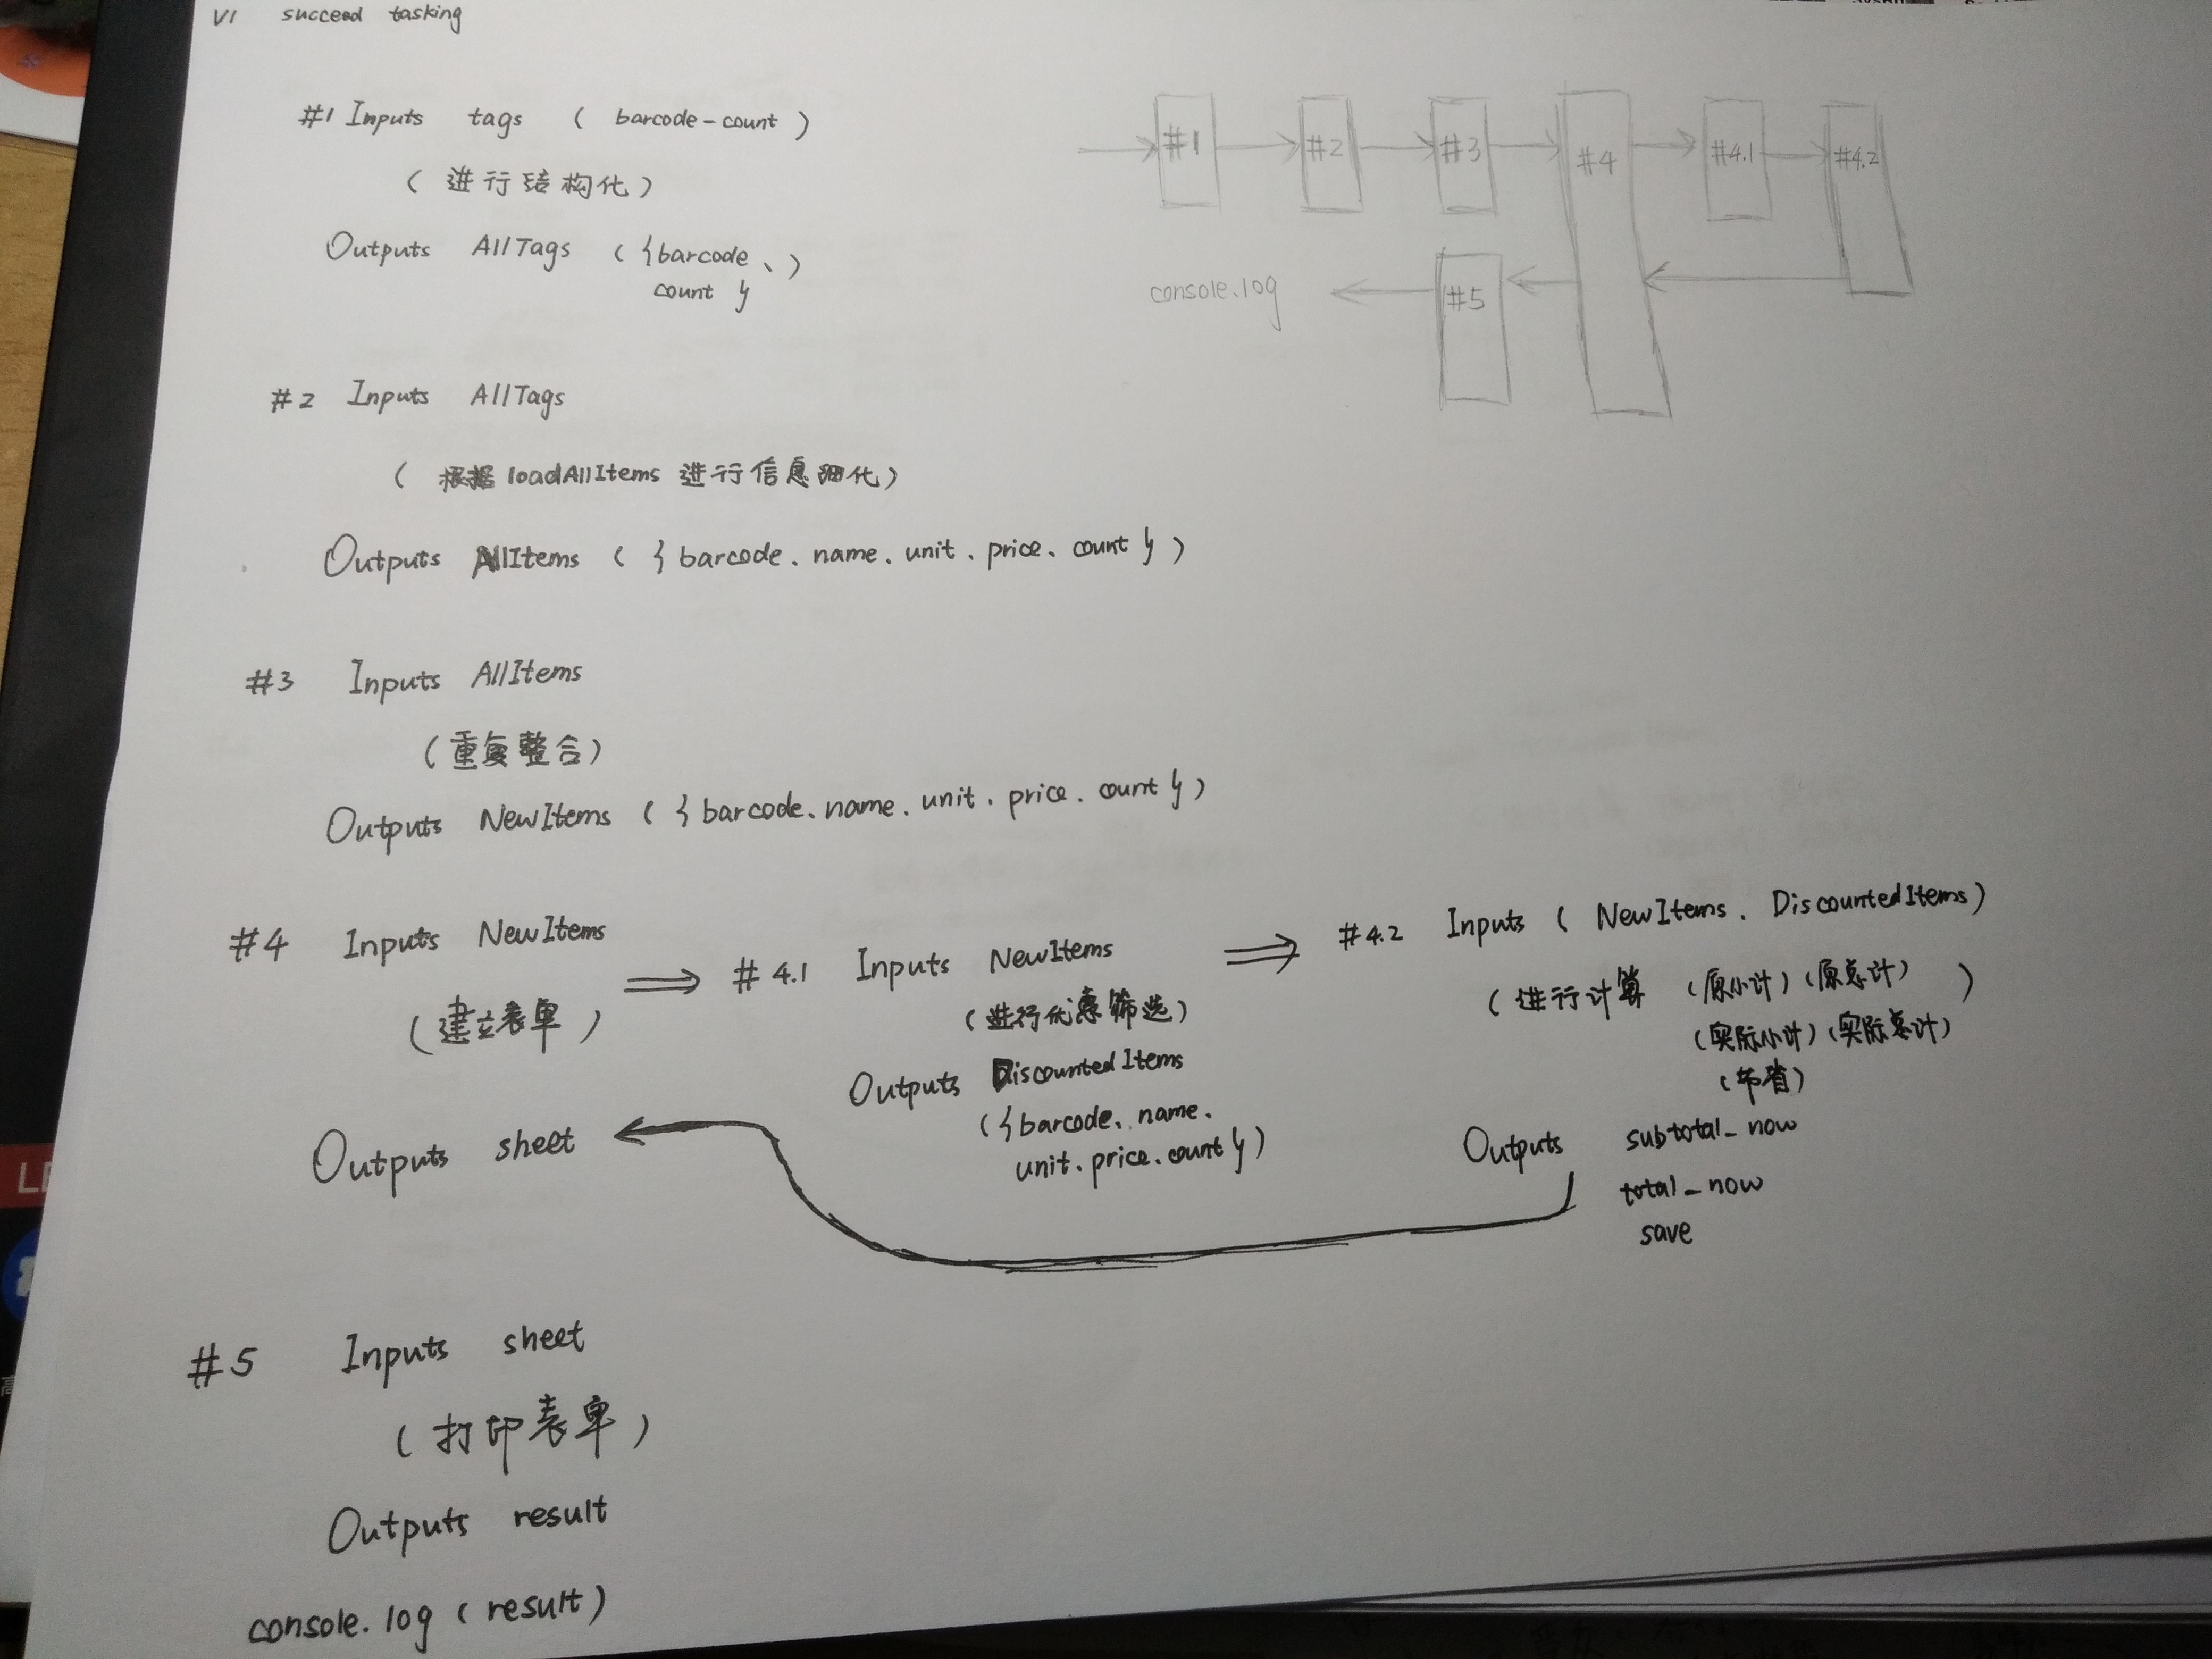 V1 succeed tasking
#1 Inputs tags ( barcode-count )
( 进行结构化 )
Outputs AllTags ( {barcode 、 )
count }
#1 #2 #3 #4 #4.1 #4.2
console.log #5
#2 Inputs AllTags
( 根据 loadAllItems 进行信息细化 )
Outputs AllItems ( { barcode . name . unit . price . count } )
#3 Inputs AllItems
( 重复整合 )
Outputs NewItems ( { barcode . name . unit . price . count } )
#4 Inputs NewItems
( 建立表单 )
Outputs sheet
#4.1 Inputs NewItems
( 进行优惠筛选 )
Outputs DiscountedItems
( { barcode . name .
unit . price . count } )
#4.2 Inputs ( NewItems . DiscountedItems )
( 进行计算 (原小计) (原总计) )
(实际小计) (实际总计)
(节省)
Outputs subtotal_now
total_now
save
#5 Inputs sheet
( 打印表单 )
Outputs result
console.log ( result )